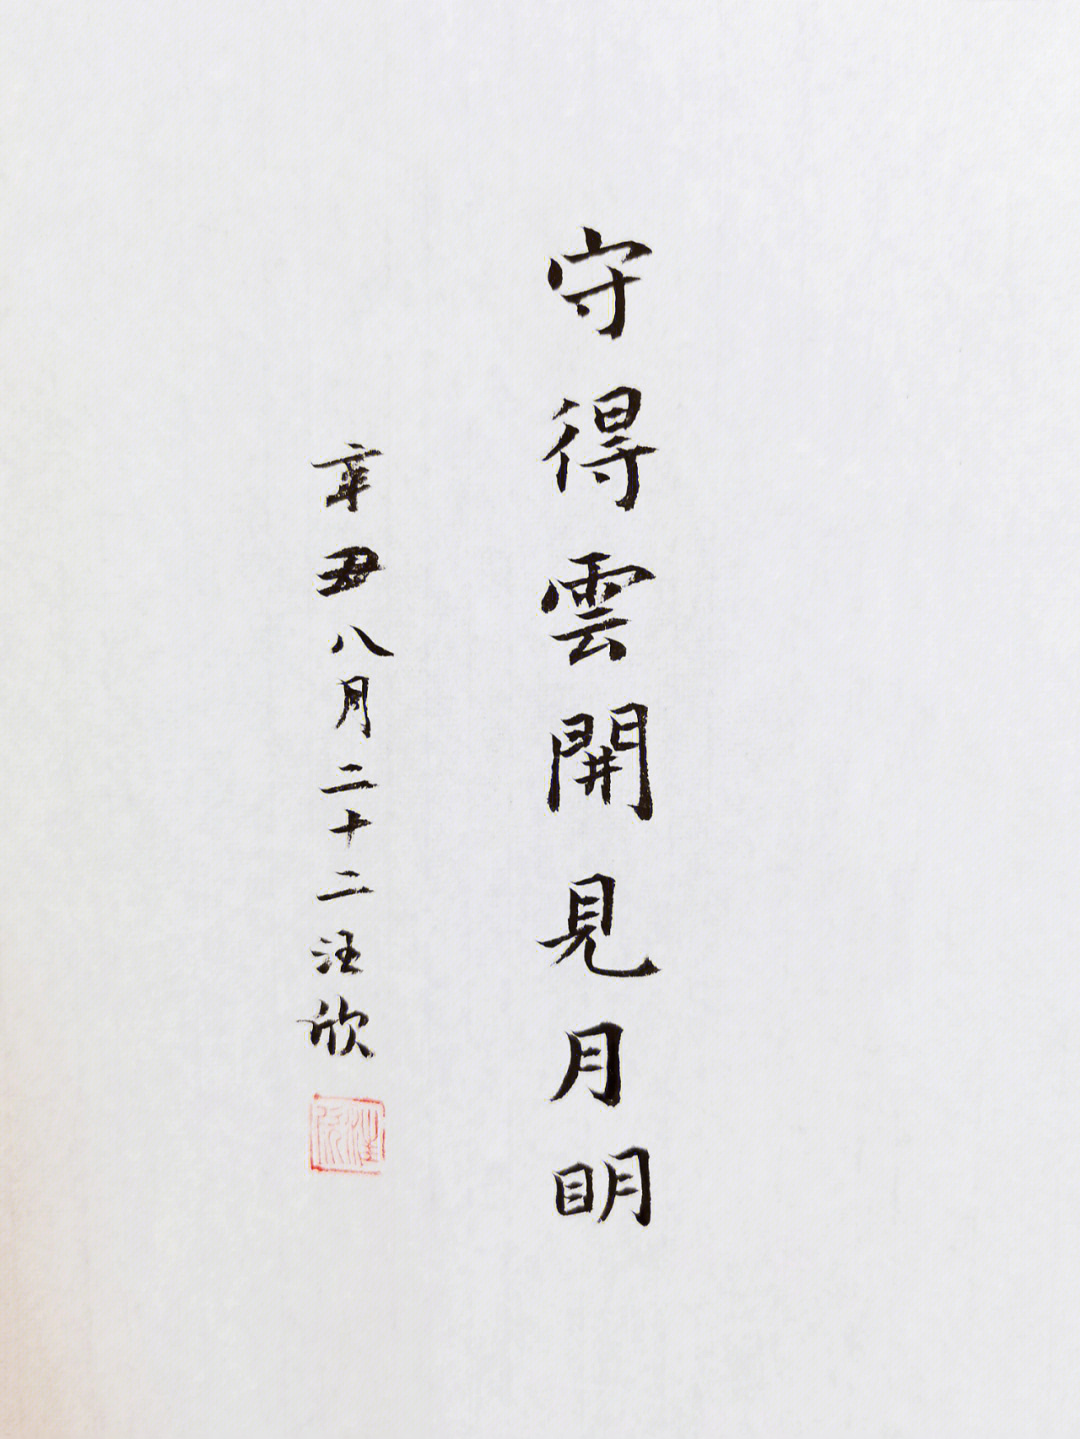 守得雲開見月明
辛丑八月二十二汪欣